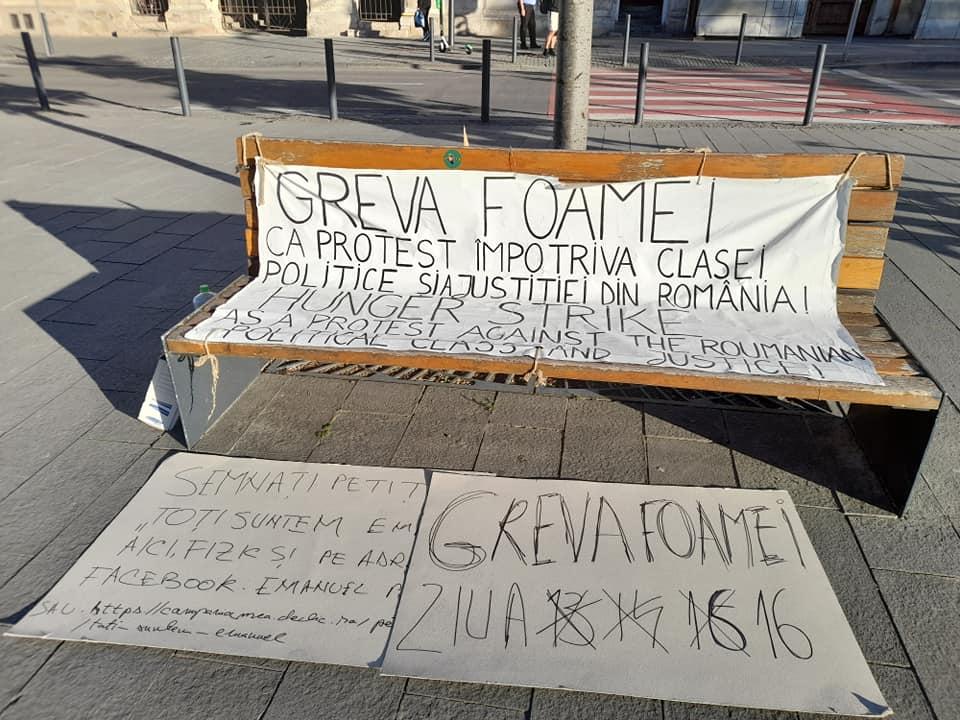 GREVA FOAMEI
CA PROTEST ÎMPOTRIVA CLASEI
POLITICE SI A JUSTITIEI DIN ROMÂNIA!
HUNGER STRIKE
AS A PROTEST AGAINST THE ROUMANIAN
POLITICAL CLASS AND JUSTICE!
SEMNAȚI PETIȚ
„TOȚI SUNTEM EM
AICI, FIZIC ȘI PE ADR
FACEBOOK. EMANUEL
SAU. https://campaniamea.declic.ro/pe
/toti-suntem-emanuel
GREVA FOAMEI
ZIUA 13 14 15 16